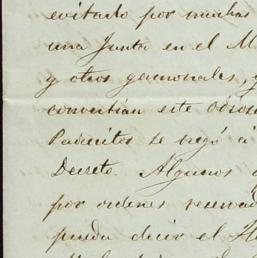 evitado por muchas
una Junta en el M
y otros gamonales, y
convertian este odioso
se negó á
Decreto. Algunos
por ordenes reservad
pueda decir el